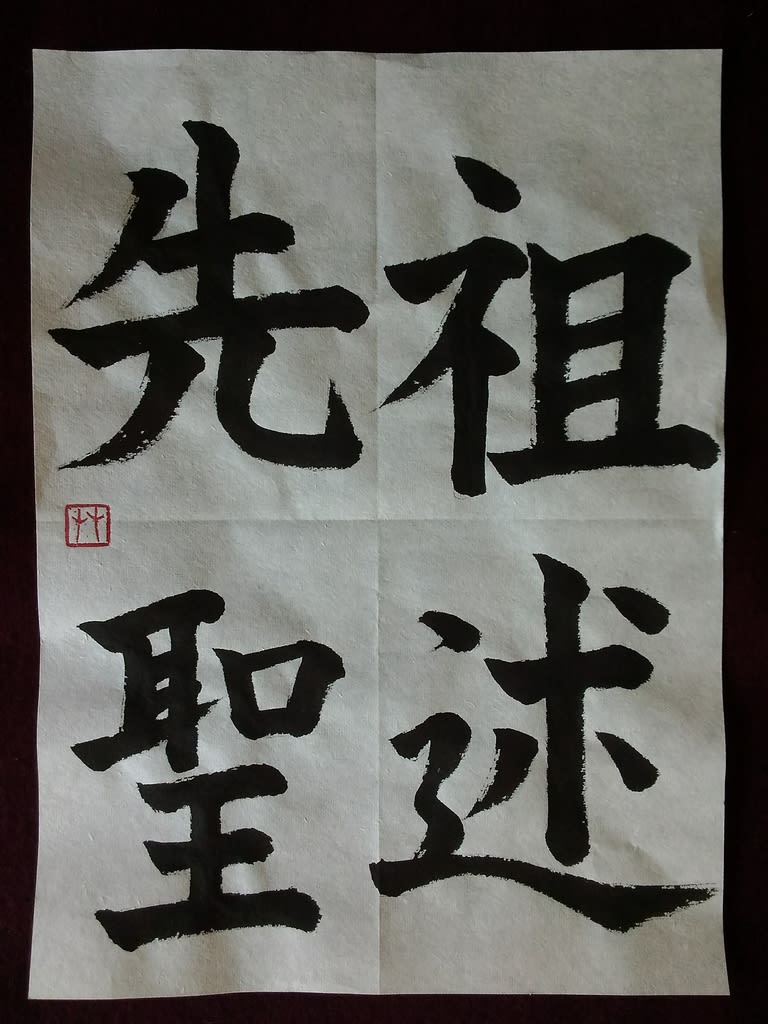 祖述
先聖